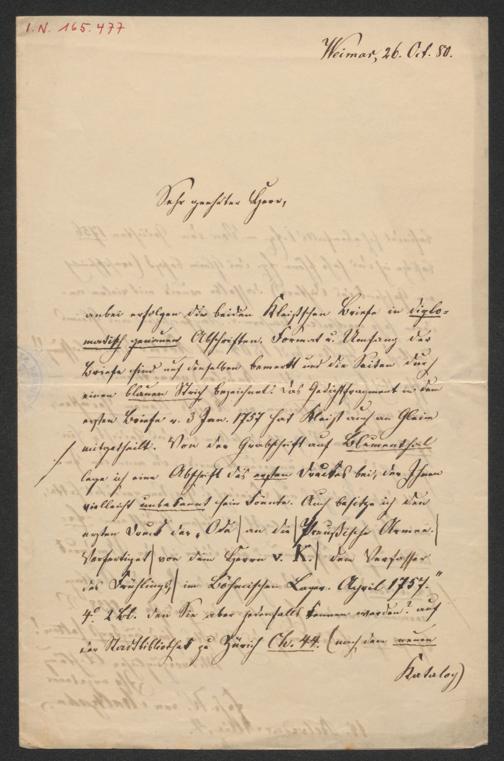 I. N. 165.477
Weimar, 26. Oct. 80.
Sehr geehrter Herr,
anbei erfolgen die beiden Kleistschen Briefe in diplo-
matisch genauen Abschriften. Format u. Umfang der
Briefe sind auf denselben bemerkt und die Seiten durch
einen blauen Strich bezeichnet. Das Gedichtfragment in dem
ersten Briefe v. 3 Jan. 1757 hat Kleist auch an Gleim
mitgetheilt. Von der Grabschrift auf Blumenthal
lege ich eine Abschrift des ersten Druckes bei, der Ihnen
vielleicht unbekannt sein könnte. Auch besitze ich den
ersten Druck der „Ode | an die | Preußische Armee. |
Verfertiget | von dem Herrn v. K. | dem Verfasser
des Frühlings | im Böhmischen Lager. April 1757."
4° 2 Bl. den Sie aber jedenfalls kennen werden? auf
der Stadtbibliothek zu Zürich Ch. 44. (nach dem neuen
Katalog)